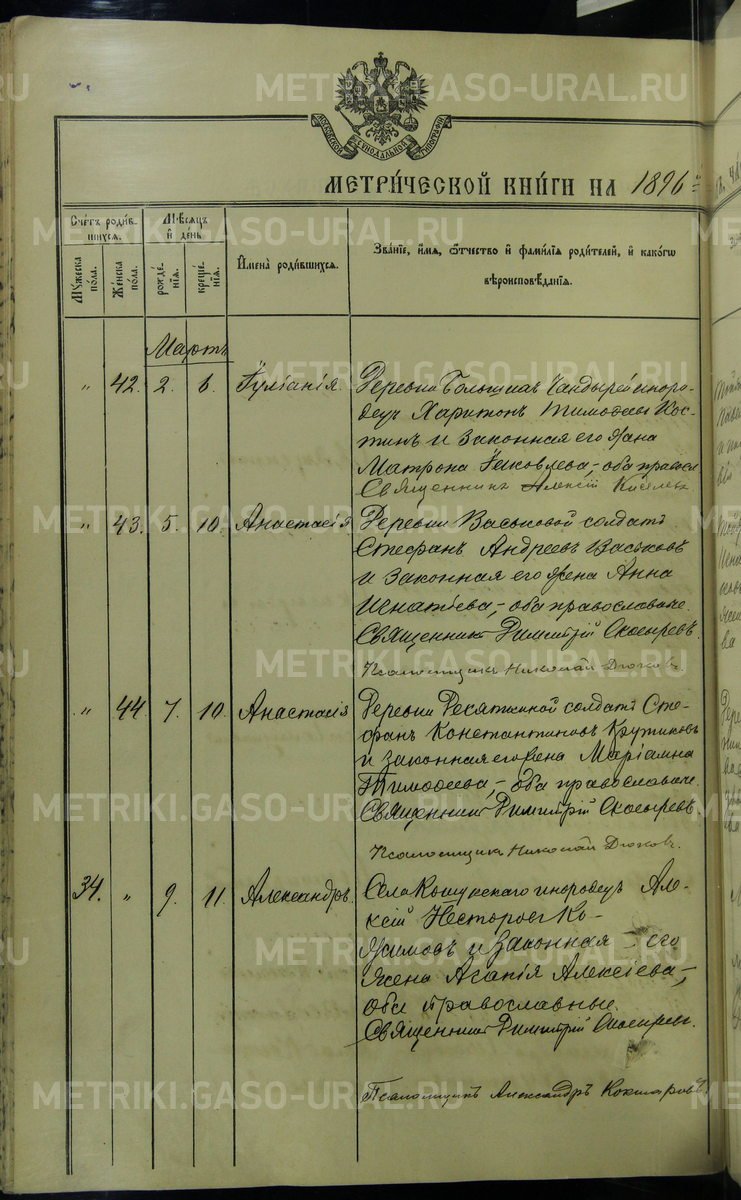 METRIKI.GASO-URAL.RU
МОСКОВСКОЙ СѴНОДАЛЬНОЙ ТИПОГРАФІИ
МЕТРИ́ЧЕСКОЙ КНИ́ГИ НА 1896
Сче́тъ роди́в-
шихсѧ.
Мѣ́сѧцъ
и҆ де́нь
И҆мена̀ роди́вшихсѧ.
Зва́нїе, и҆́мѧ, ѻ҆́тчество и҆ фами́лїѧ роди́телей, и҆ како́гѡ
вѣроисповѣ́данїѧ.
Мꙋ́жеска по́ла.
Же́нска по́ла.
рожде́-
нїѧ.
креще́-
нїѧ.
Мартъ
" 42. 2. 6. Іуліанія. Деревни Большихъ Чандырей иноро-
децъ Харитонъ Тимофеевъ Кос-
тинъ и законная его жена
Матрона Іаковлева, оба правосл
Священникъ Алексій Киселевъ
" 43. 5. 10. Анастасія Деревни Васьковой солдатъ
Стефанъ Андреевъ Васьковъ
и законная его жена Анна
Игнатіева, оба православные.
Священникъ Димитрій Скосыревъ.
Псаломщикъ Николай
" 44. 7. 10. Анастасія Деревни Десяткиной солдатъ Сте-
фанъ Константиновъ Крутиковъ
и законная его жена Маріамна
Тимофеева, оба православные.
Священникъ Димитрій Скосыревъ.
Псаломщикъ Николай
34. " 9. 11. Александръ. Села Кошукскаго инородецъ Але-
ксій Несторовъ Ко-
жимовъ и законная его
жена Агапія Алексіева,
оба православные.
Священникъ Димитрій Скосыревъ.
Псаломщикъ Александръ Кокшаровъ